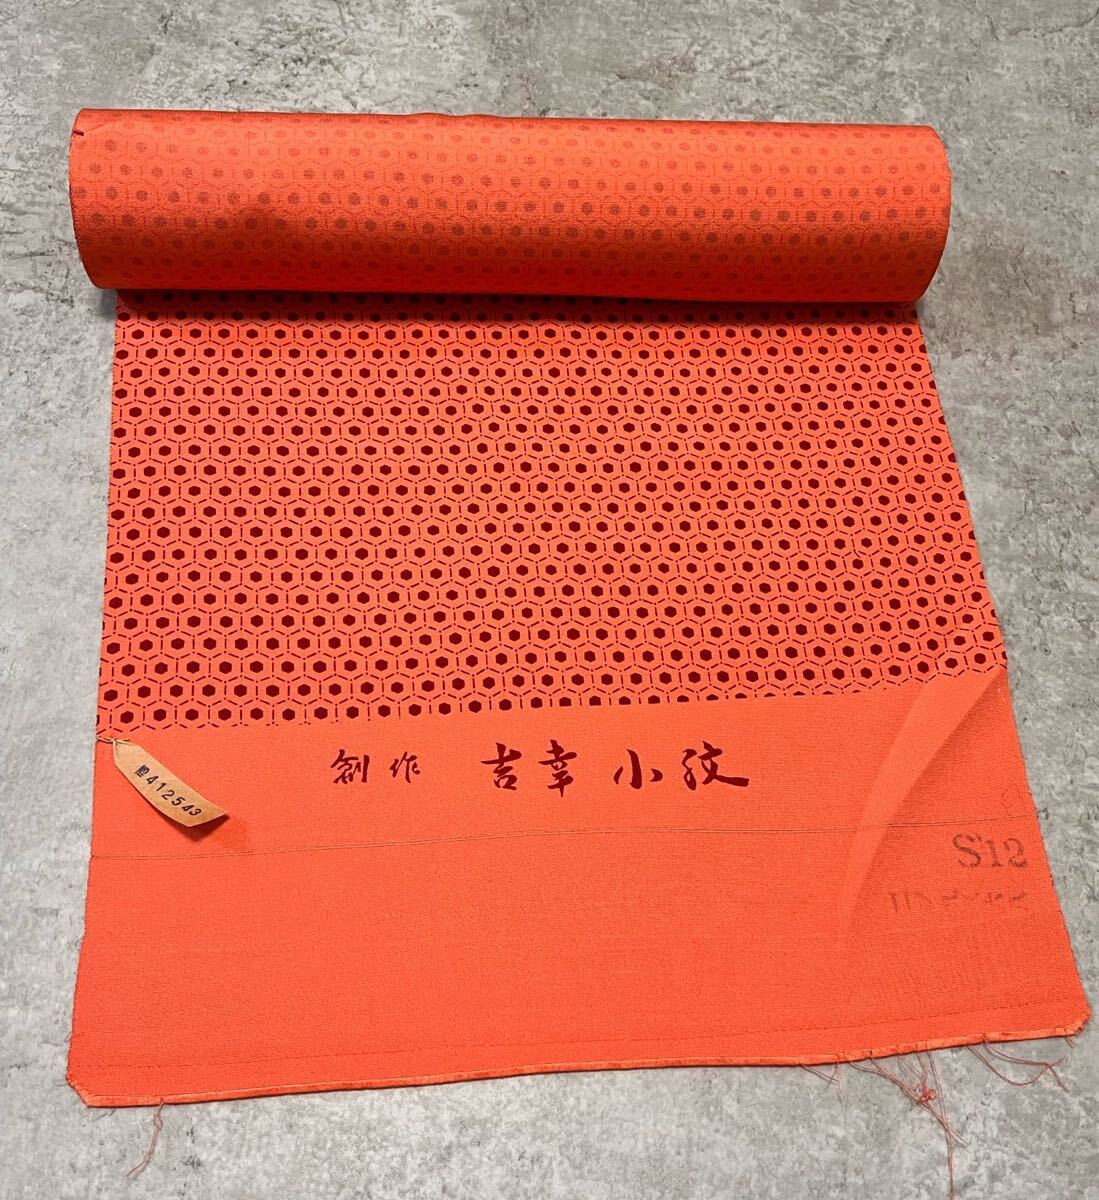 創作 吉幸小紋
412543
S12